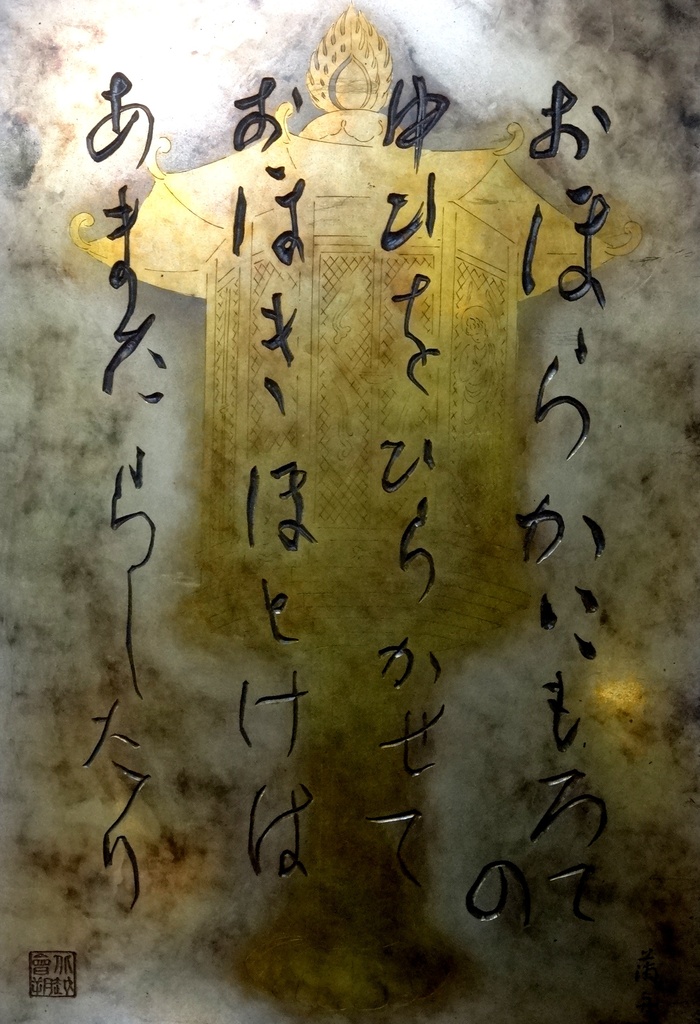 おほらかにもろての
ゆひをひらかせて
おほきほとけは
あまたらしたり